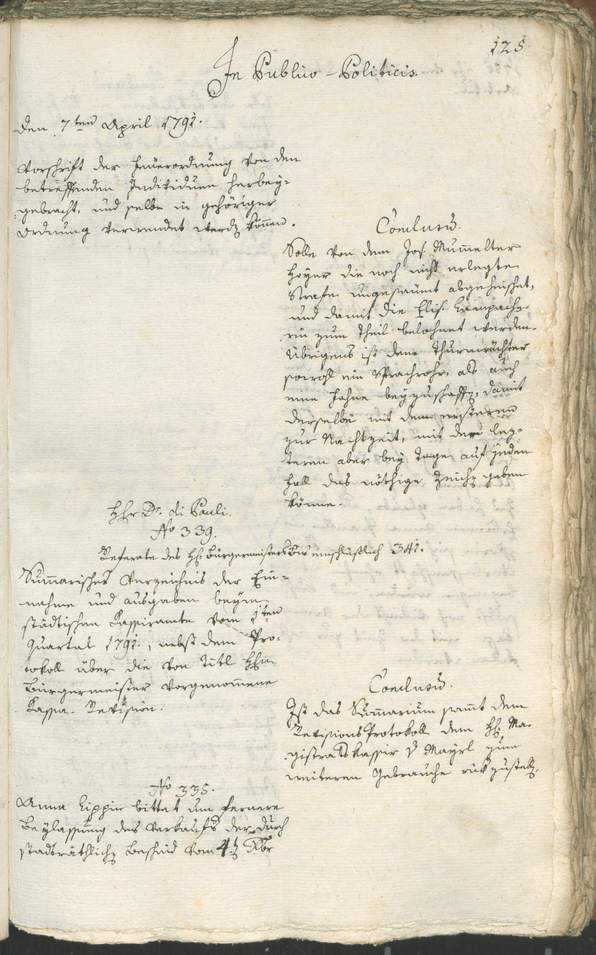 125
In Publico-Politicis.
den 7ten April 1791.
Vorschrift der Feuerordnung von den
betreffenden Individuen herbey-
gebracht, und selbe in gehöriger
Ordnung verwendet werdẽ können.
Conclusũ.
Solle von dem Jos. Mumelter
Hoyer die noch nicht erlegte
Strafe ungesäumt abgeheischet,
und damit die Elis. Lampach-
rin zum Theil belohnet werden.
Übrigens ist dem Thurmwächter
sowohl ein Sprachrohr, als auch
eine Fahne beyzuschaffẽ, damit
derselbe mit dem ersteren
zur Nachtzeit, mit der lez-
teren aber bey Tage auf jeden
Fall das nöthige Zeichẽ geben
könne.
Hhr Dr. di Pauli.
No 339.
Referate des Hh: Bürgermeisters bis inschlüßlich 341.
Sumarisches Verzeichnis der Ein-
nahme und Ausgaben beym
städtischen Kassieramte vom 1ten
Quartal 1791., nebst dem Pro-
tokoll über die von Titl Hhn
Bürgermeister vorgenomene
Kassa-Revision.
Conclusũ.
Ist das Sumarium samt dem
Revisions Protokoll dem Hh: Ma-
gistratskassir v Mayrl zum
weiteren Gebrauche rükzustelẽ.
No 335.
Anna Lippin bittet um fernere
Beylassung des Verkaufs der durch
stadträthlichẽ Bescheid vom 4ẽ Xbr